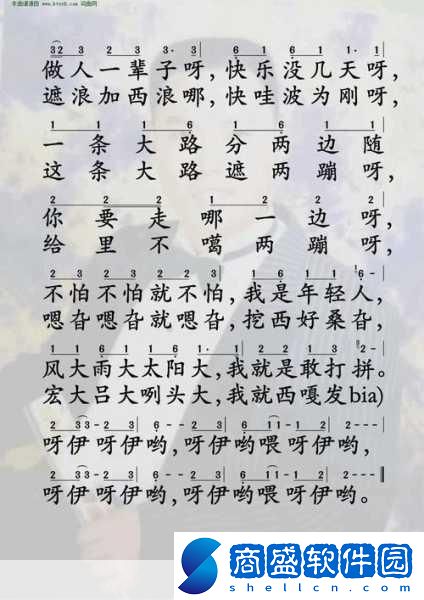 本曲谱源自 www.ktvc8.com 词曲网
3 2 3 2 3 3· 3 6 1 6 1 1· 1
做人一辈子呀,快乐没几天呀,
遮浪加西浪哪,快哇波为刚呀,
1 1 1 6 6 1 1
一条大路分两边随
这条大路遮两蹦呀,
2 2 2 1 2 2 2
你要走哪一边呀,
给里不噶两蹦呀,
不怕不怕就不怕,我是年轻人,
嗯旮嗯旮就嗯旮,挖西好桑旮,
1 1 6 1 1 6 1· 1 2 2 1 3 2 -
风大雨大太阳大,我就是敢打拼。
宏大吕大咧头大,我就西嘎发bia)
2 3 3 - 2 3 6 - - 2 3 6 1 1 - 1 2 2 - - -
呀伊呀伊哟,呀伊哟喂呀伊哟,
2 3 3 - 2 3 6 - - 2 3 6 1 1 - 1 2 2 - - -
呀伊呀伊哟,呀伊哟喂呀伊哟。
商盛软件园
www.shellsoft.com.cn